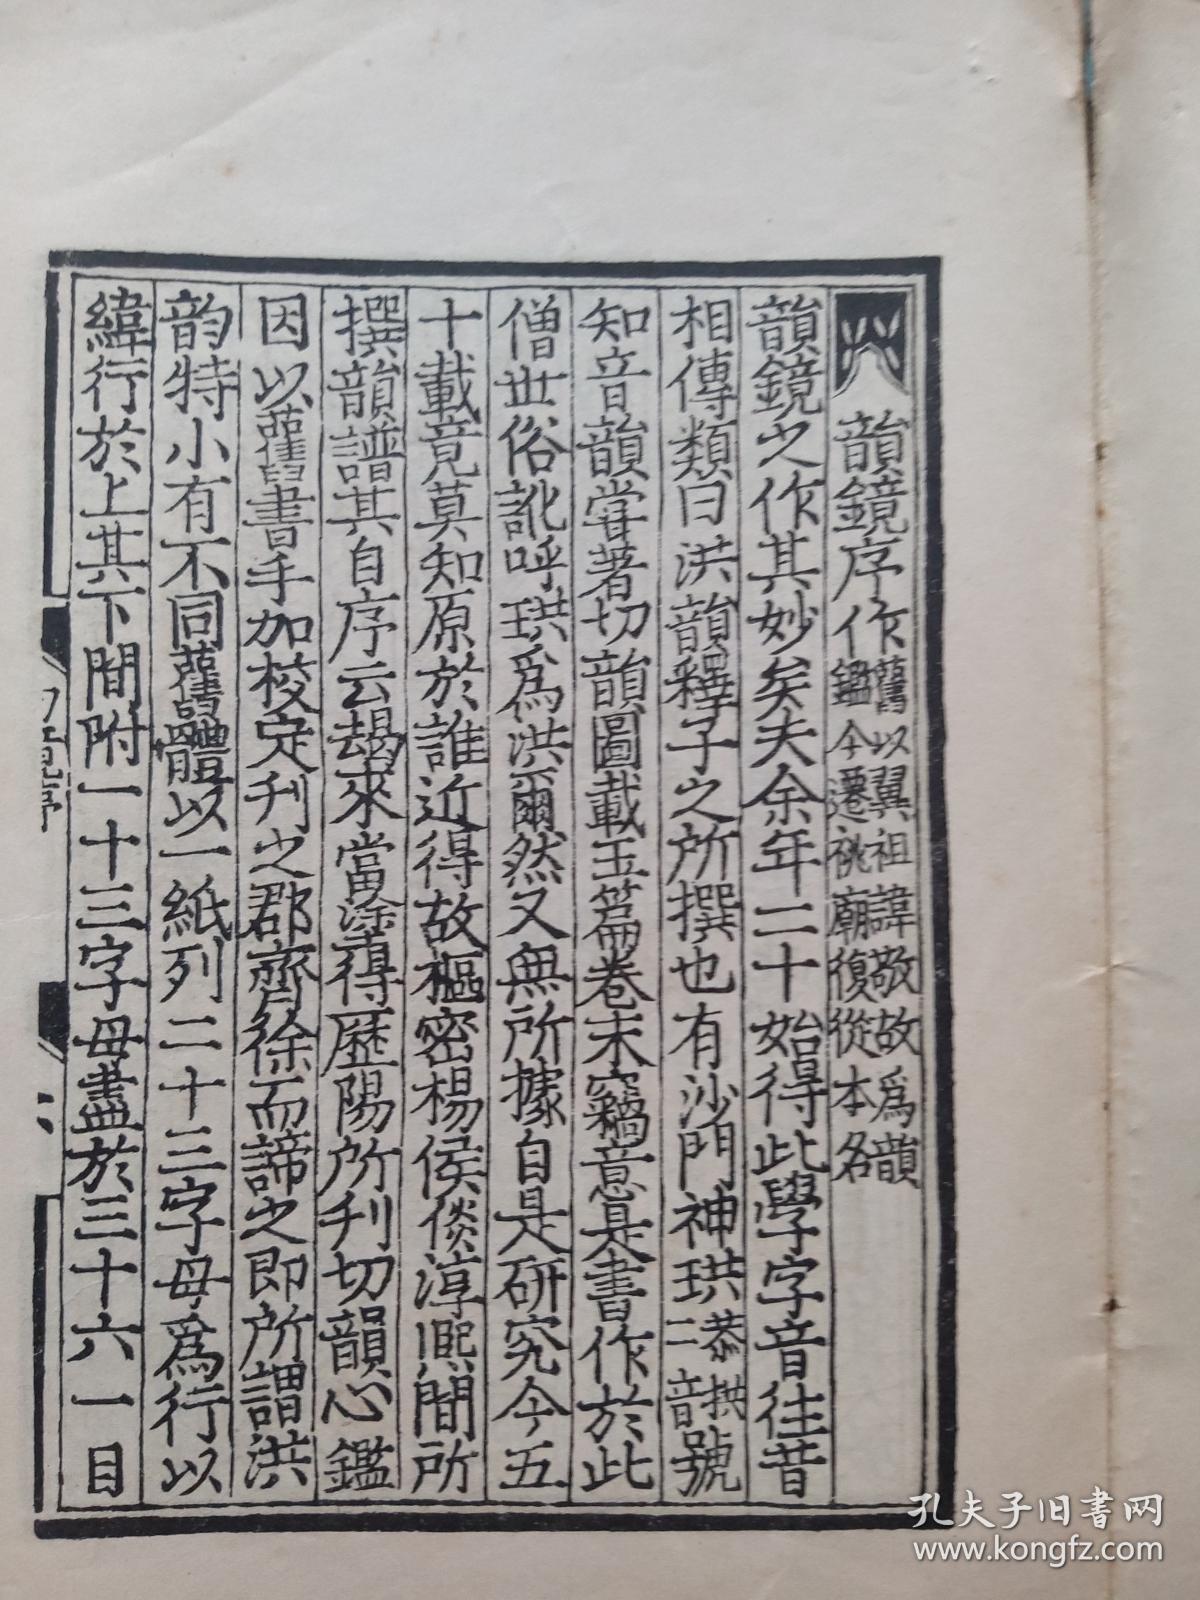 韻鏡序作舊以翼祖諱敬故爲韻鑑今遷祧廟復從本名
韻鏡之作其妙矣夫余年二十始得此學字音往昔
相傳類曰洪韻釋子之所撰也有沙門神珙恭拱二音號
知音韻嘗著切韻圖載玉篇卷末竊意是書作於此
僧世俗訛呼珙爲洪爾然又無所據自是研究今五
十載竟莫知原於誰近得故樞密楊侯倓淳熙間所
撰韻譜其自序云朅來當塗得歷陽所刋切韻心鑑
因以舊書手加校定刋之郡齊徐而諦之即所謂洪
韵特小有不同舊體以一紙列二十三字母爲行以
緯行於上其下間附一十三字母盡於三十六一目
孔夫子旧书网
www.kongfz.com